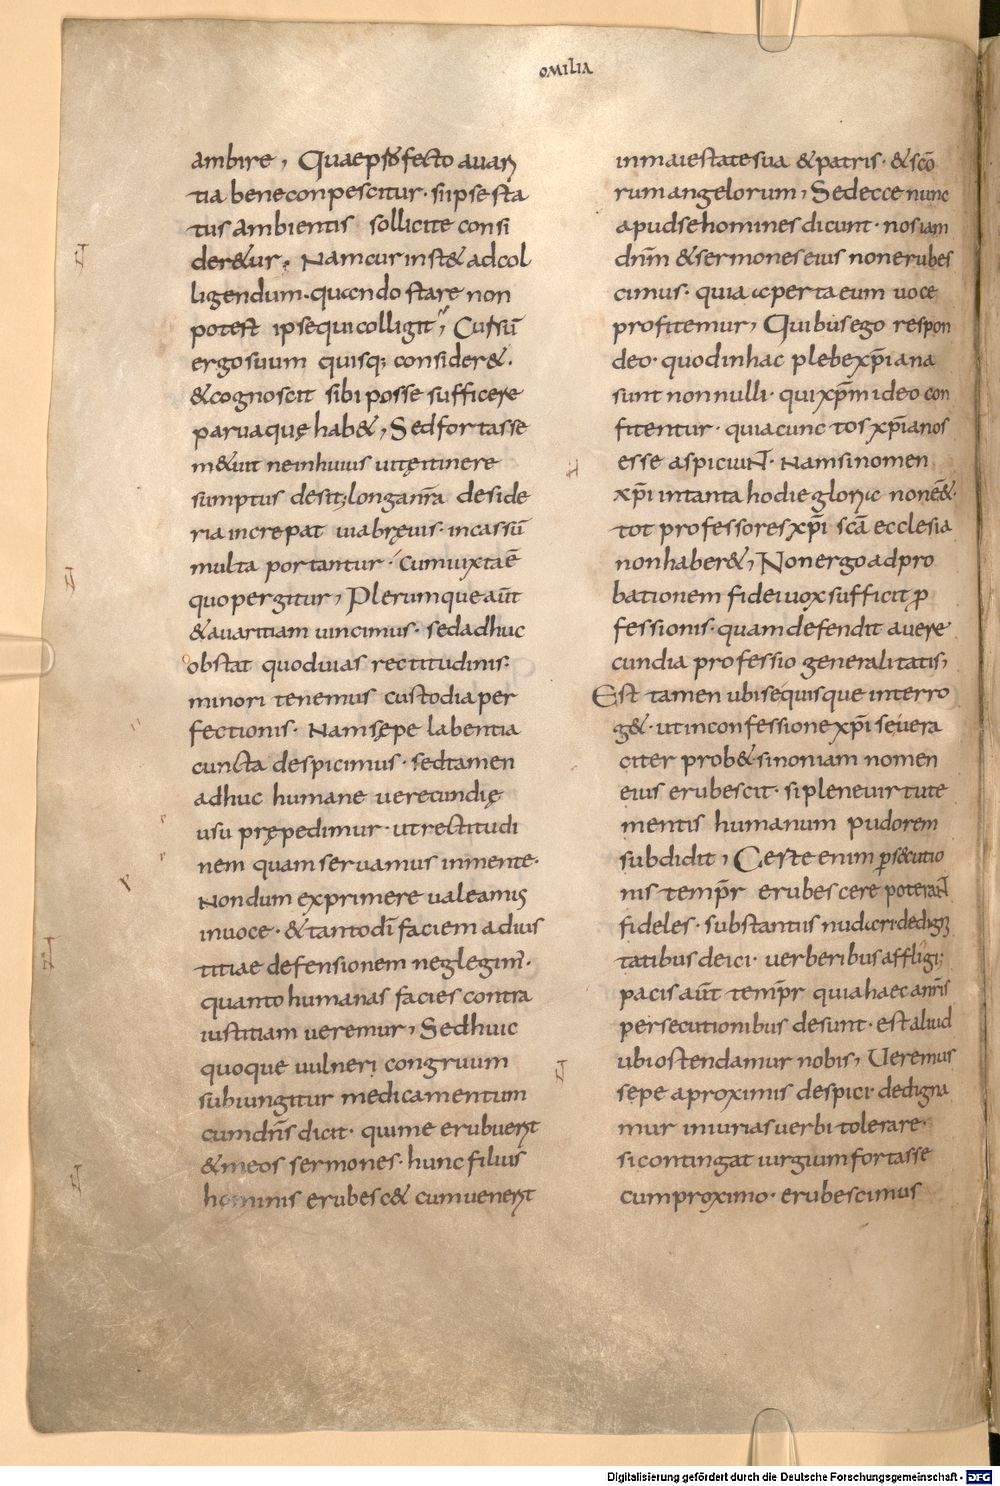 omilia
ambire, Quae profecto avari
tia bene conpescitur· si ipse sta
tus ambientis sollicite consi
der&ur. Nam cur inst& ad col
ligendum· quando stare non
potest ipse qui colligit, Cursū
ergo suum quisq; consider&·
& cognoscit sibi posse sufficere
parva quę hab&, Sed fortasse
m&uit ne in huius vitę itinere
sumptus desit; longa nr̄a deside
ria increpat via brevis· incassū
multa portantur· cum iuxta ē
quo pergitur, Plerumque aūt
& avaritiam vincimus· sed adhuc
obstat quod vias rectitudinis·
minori tenemus custodia per
fectionis· Nam sępe labentia
cuncta despicimus· sed tamen
adhuc humane verecundię
usu prępedimur· ut rectitudi
nem quam servamus in mente·
Nondum exprimere valeamus
in voce· & tanto dī faciem ad ius
titiae defensionem neglegim̄·
quanto humanas facies contra
iustitiam veremur, Sed huic
quoque vulneri congruum
subiungitur medicamentum
cum dn̄s dicit· qui me erubuerit
& meos sermones· hunc filius
hominis erubesc& cum venerit
in maiestate sua & patris· & scō
rum angelorum, Sed ecce nunc
apud se homines dicunt· nos iam
dn̄m & sermones eius non erubes
cimus· quia aperta eum voce
profitemur, Quibus ego respon
deo· quod in hac plebe xp̄iana
sunt nonnulli· qui xp̄m ideo con
fitentur· quia cunctos xp̄ianos
esse aspiciunt· Nam si nomen
xp̄i in tanta hodie gloria non ēē&·
tot professores xp̄i scā ecclesia
non haber&, Non ergo ad pro
bationem fidei vox sufficit p
fessionis· quam defendit a vere
cundia professio generalitatis,
Est tamen ubi se quisque interro
g&· ut in confessione xp̄i se vera
citer prob& si non iam nomen
eius erubescit· si plene virtute
mentis humanum pudorem
subdidit, Certe enim psecutio
nis tempr̄ erubescere poterant
fideles· substantiis nudari· dedigni
tatibus deici· verberibus affligi;
pacis aūt tempr̄ quia haec a nr̄is
persecutionibus desunt· est aliud
ubi ostendamur nobis, Veremur
sepe a proximis despici· dedigna
mur iniurias verbi tolerare·
si contingat iurgium fortasse
cum proximo· erubescimus
Digitalisierung gefördert durch die Deutsche Forschungsgemeinschaft - DFG